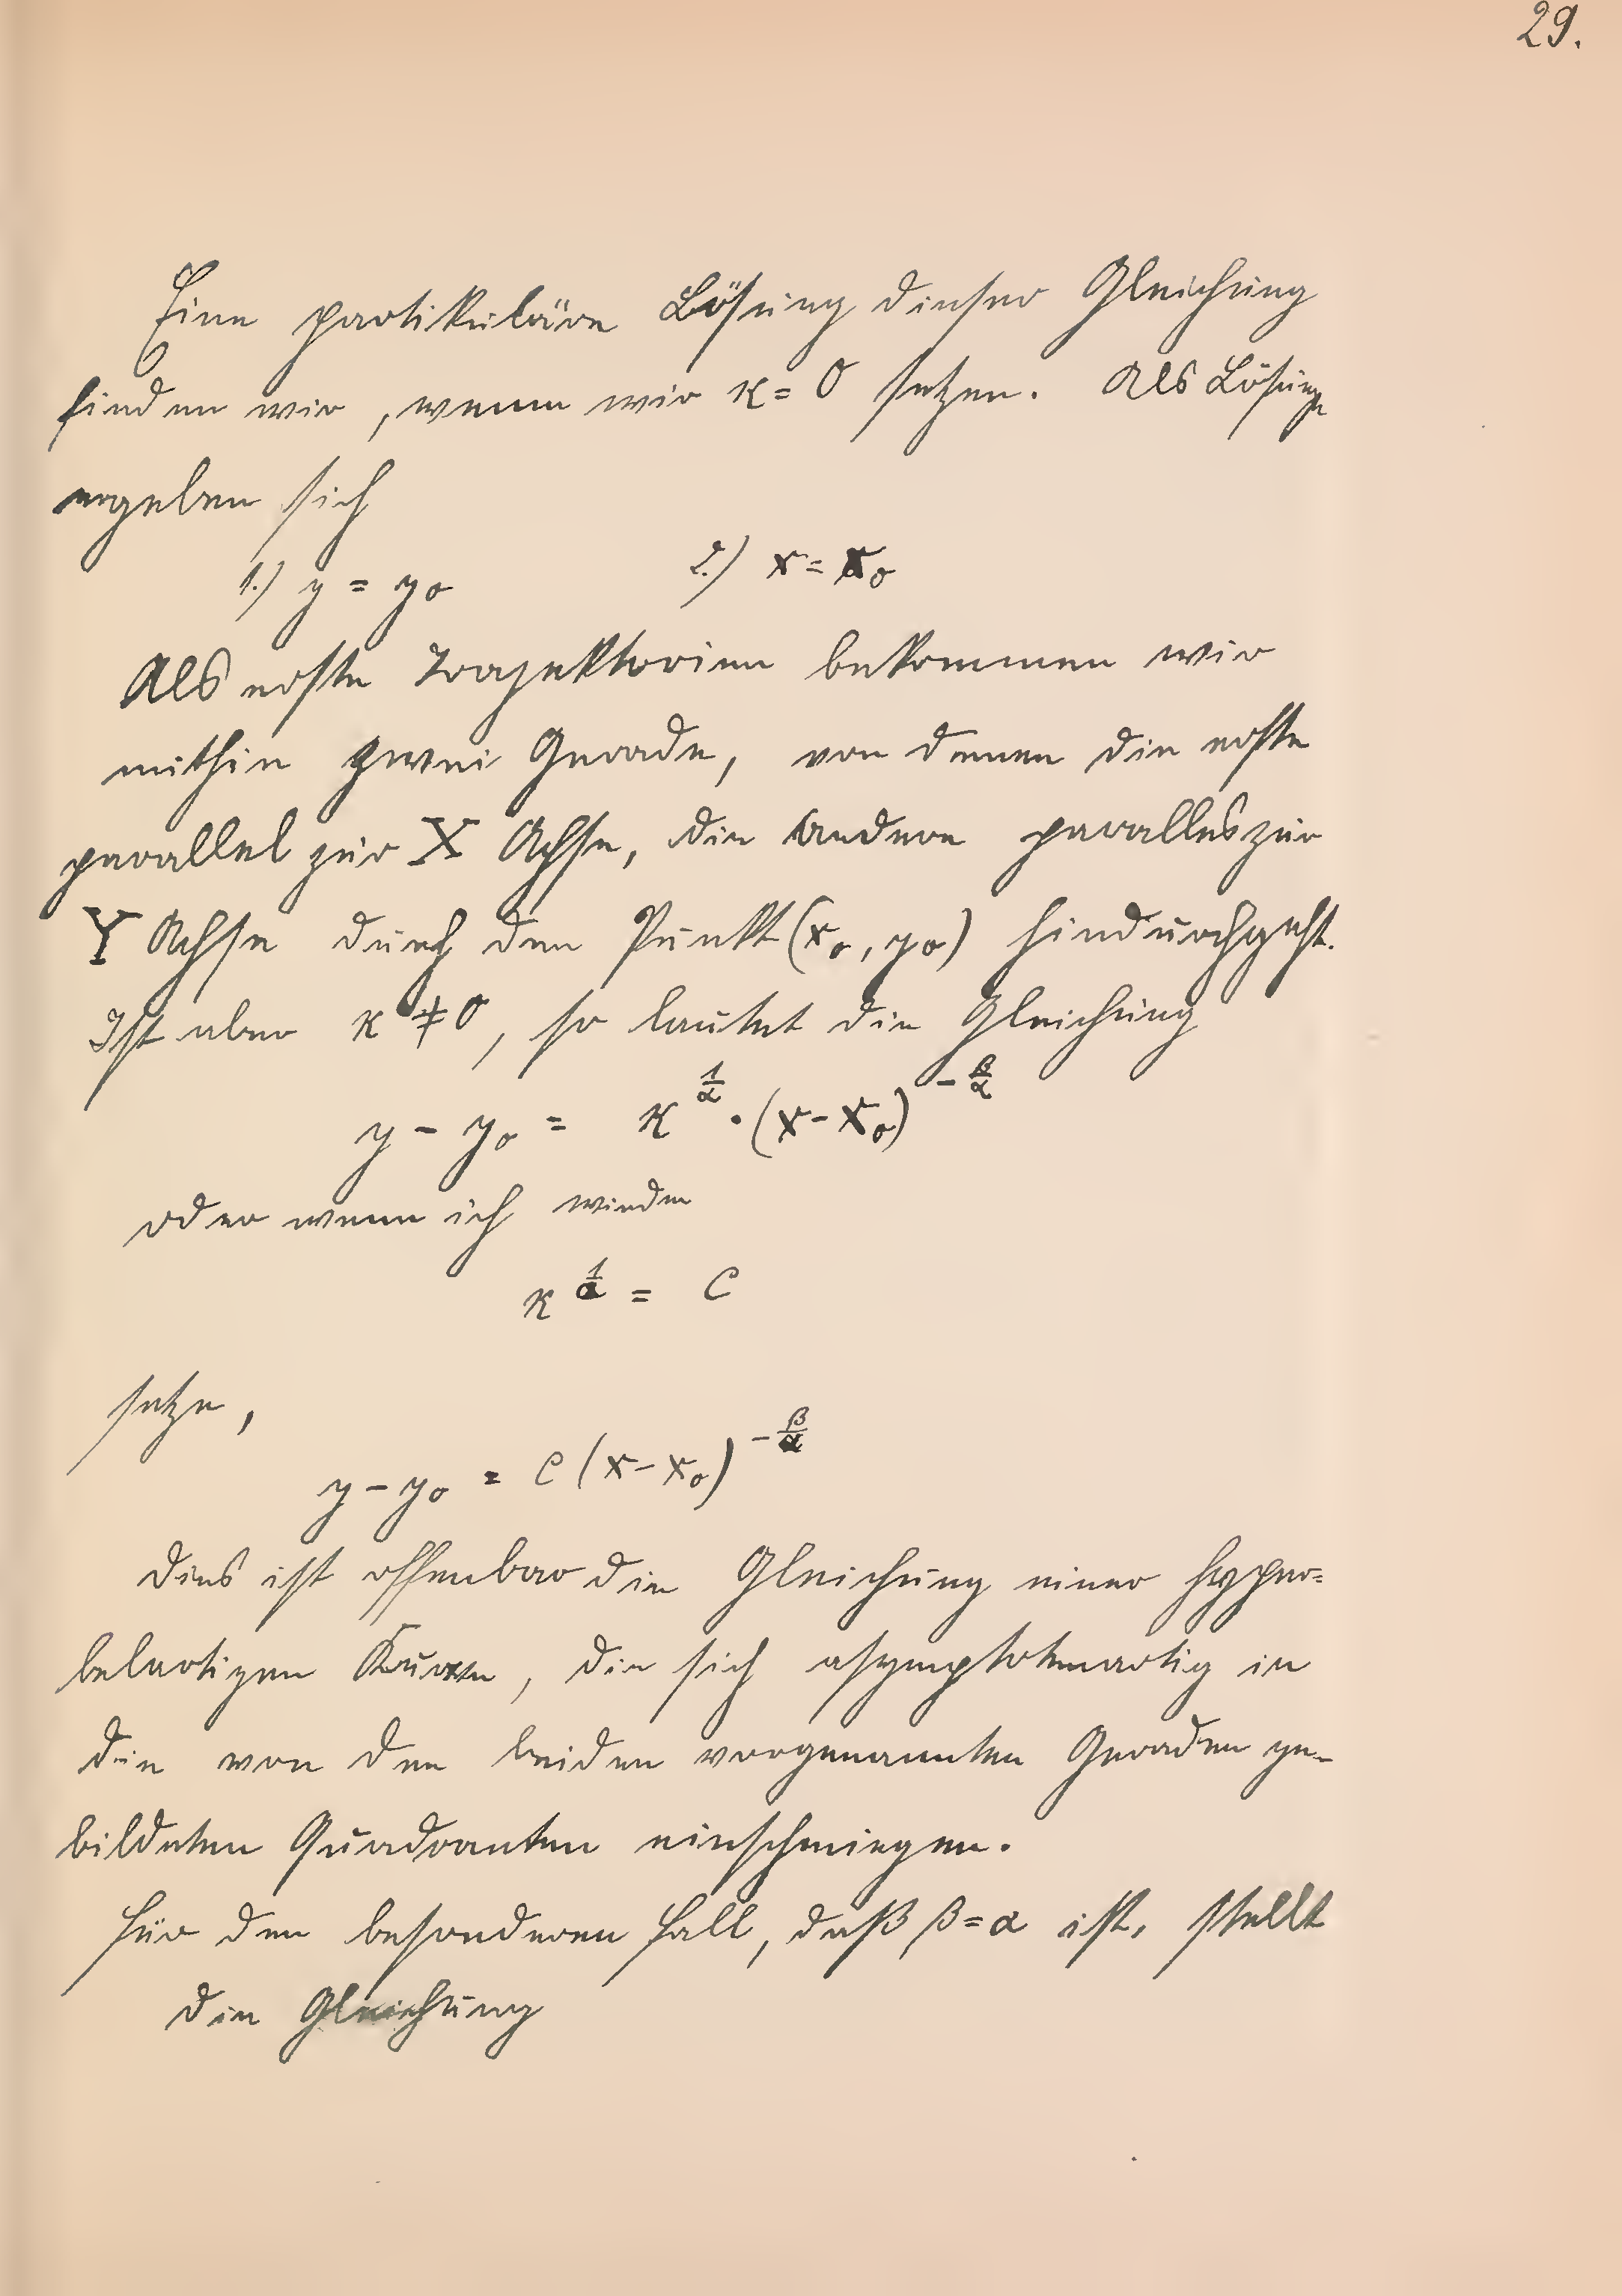 29.
Eine partikuläre Lösung dieser Gleichung
finden wir, wenn wir κ = 0 setzen. Als Lösung
ergeben sich
1.) y = y₀ 2.) x = x₀
Als erste Trajektorien bekommen wir
mithin zwei Gerade, von denen die erste
parallel zur X Achse, die andere parallel zur
Y Achse durch den Punkt (x₀, y₀) hindurchgeht.
Ist aber κ ≠ 0, so lautet die Gleichung
y - y₀ = κ^{1/α} · (x - x₀)^{-β/α}
oder wenn ich wieder
κ^{1/α} = C
setze,
y - y₀ = C (x - x₀)^{-β/α}
Dies ist offenbar die Gleichung einer hyper=
belartigen Kurve, die sich asymptotenartig in
die von den beiden vorgenannten Geraden ge-
bildeten Quadranten einschmiegen.
Für den besonderen Fall, daß β = α ist, stellt
die Gleichung